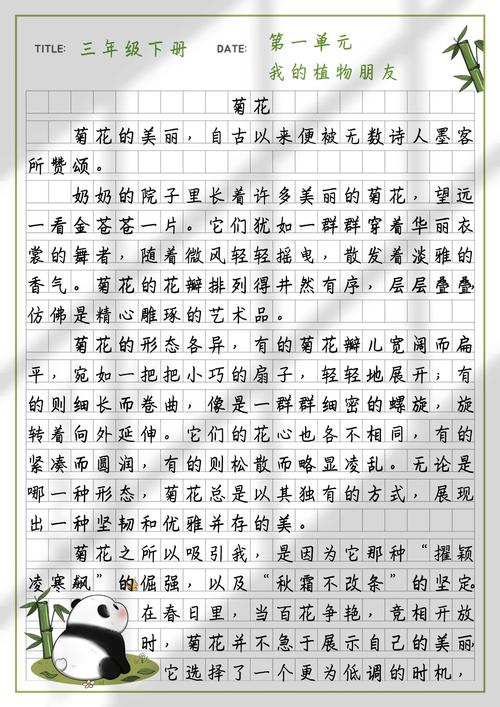 TITLE: 三年级下册 DATE: 第一单元
我的植物朋友
菊花
菊花的美丽，自古以来便被无数诗人墨客
所赞颂。
奶奶的院子里长着许多美丽的菊花，望远
一看金苍苍一片。它们犹如一群群穿着华丽衣
裳的舞者，随着微风轻轻摇曳，散发着淡雅的
香气。菊花的花瓣排列得井然有序，层层叠叠，
仿佛是精心雕琢的艺术品。
菊花的形态各异，有的菊花瓣儿宽阔而扁
平，宛如一把把小巧的扇子，轻轻地展开；有
的则细长而卷曲，像是一群群细密的螺旋，旋
转着向外延伸。它们的花心也各不相同，有的
紧凑而圆润，有的则松散而略显凌乱。无论是
哪一种形态，菊花总是以其独有的方式，展现
出一种坚韧和优雅并存的美。
菊花之所以吸引我，是因为它那种“擢颖
凌寒飙”的倔强，以及“秋霜不改条”的坚定。
在春日里，当百花争艳，竞相开放
时，菊花并不急于展示自己的美丽，
它选择了一个更为低调的时机，